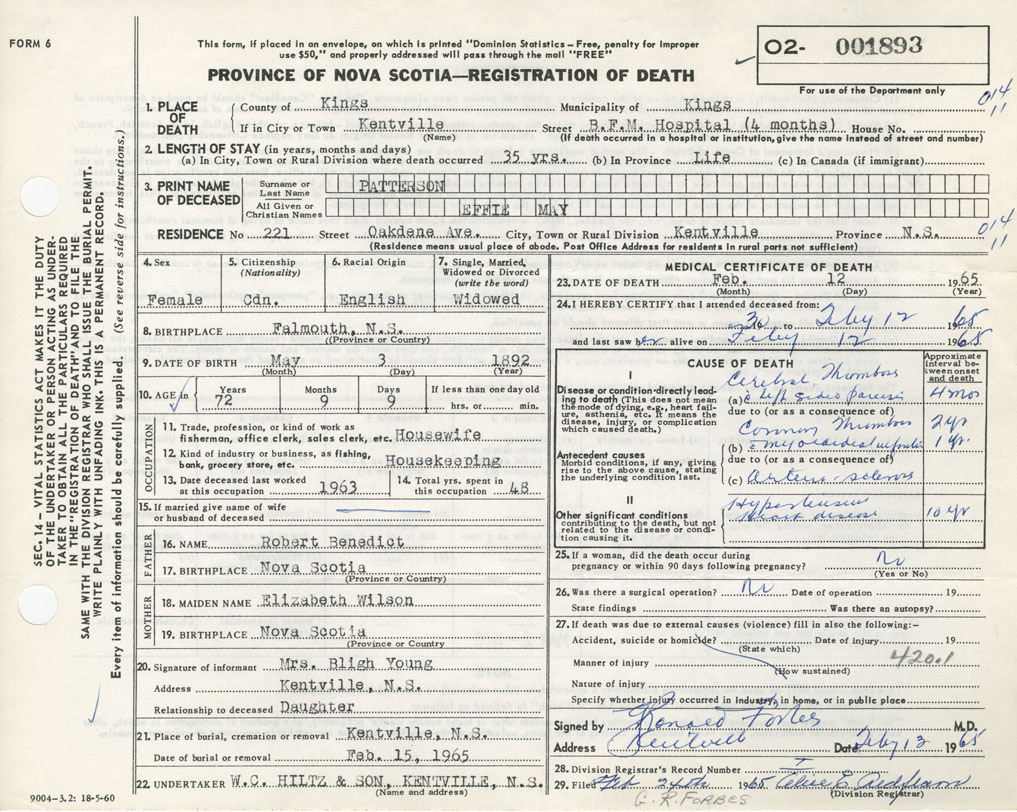 FORM 6
This form, if placed in an envelope, on which is printed "Dominion Statistics – Free, penalty for improper
use $50," and properly addressed will pass through the mail "FREE"
O2- 001893
For use of the Department only
PROVINCE OF NOVA SCOTIA—REGISTRATION OF DEATH
014
11
1. PLACE OF DEATH
County of Kings Municipality of Kings
If in City or Town Kentville Street B.F.M. Hospital (4 months) House No.
(Name) (If death occurred in hospital or institution, give the name instead of street and number)
2. LENGTH OF STAY (in years, months and days)
(a) In City, Town or Rural Division where death occurred 35 yrs. (b) In Province Life (c) In Canada (if immigrant)
3. PRINT NAME OF DECEASED
Surname or Last Name PATTERSON
All Given or Christian Names EFFIE MAY
014
11
RESIDENCE No 221 Street Oakdene Ave. City, Town or Rural Division Kentville Province N.S.
(Residence means usual place of abode. Post Office Address for residents in rural parts not sufficient)
4. Sex
Female
5. Citizenship
(Nationality)
Cdn.
6. Racial Origin
English
7. Single, Married,
Widowed or Divorced
(write the word)
Widowed
8. BIRTHPLACE Falmouth, N.S.
((Province or Country)
9. DATE OF BIRTH May 3 1892
(Month) (Day) (Year)
10. AGE in
Years Months Days If less than one day old
72 9 9 hrs. or min.
OCCUPATION
11. Trade, profession, or kind of work as
fisherman, office clerk, sales clerk, etc. Housewife
12. Kind of industry or business, as fishing,
bank, grocery store, etc. Housekeeping
13. Date deceased last worked
at this occupation 1963
14. Total yrs. spent in
this occupation 48
15. If married give name of wife
or husband of deceased
FATHER
16. NAME Robert Benedict
17. BIRTHPLACE Nova Scotia
(Province or Country)
MOTHER
18. MAIDEN NAME Elizabeth Wilson
19. BIRTHPLACE Nova Scotia
(Province or Country
20. Signature of informant Mrs. Bligh Young
Address Kentville, N.S.
Relationship to deceased Daughter
21. Place of burial, cremation or removal Kentville, N.S.
Date of burial or removal Feb. 15, 1965
22. UNDERTAKER W.C. HILTZ & SON, KENTVILLE, N.S.
(Name and address)
MEDICAL CERTIFICATE OF DEATH
23. DATE OF DEATH Feb. 12 1965
(Month) (Day) (Year)
24. I HEREBY CERTIFY that I attended deceased from:
30 to Feby 12 1965
and last saw her alive on Feby 12 1965
CAUSE OF DEATH
Approximate interval between onset and death
I
Disease or condition directly leading to death (This does not mean the mode of dying, e.g., heart failure, asthenia, etc. It means the disease, injury, or complication which caused death.)
Cerebral Thrombosis
(a) c left sided paresis 4 mos
due to (or as a consequence of)
Coronary Thrombosis 2 yr
(b) c myocardial infarction 1 yr.
Antecedent causes
Morbid conditions, if any, giving rise to the above cause, stating the underlying condition last.
due to (or as a consequence of)
(c) Arterio-sclerosis
II
Other significant conditions
contributing to the death, but not related to the disease or condition causing it.
Hypertensive
Heart disease 10 yr
25. If a woman, did the death occur during
pregnancy or within 90 days following pregnancy? No
(Yes or No)
26. Was there a surgical operation? No Date of operation 19
State findings Was there an autopsy?
27. If death was due to external causes (violence) fill in also the following:–
Accident, suicide or homicide? Date of injury 19
(State which)
420.1
Manner of injury
(How sustained)
Nature of injury
Specify whether injury occurred in industry, in home, or in public place
Signed by Ronald Forbes M.D.
Address Kentville Date Feby 13 1965
28. Division Registrar's Record Number
29. Filed Feb 24th 1965
(Division Registrar)
G.R. FORBES
SEC. 14 – VITAL STATISTICS ACT MAKES IT THE DUTY
OF THE UNDERTAKER OR PERSON ACTING AS UNDER-
TAKER TO OBTAIN ALL THE PARTICULARS REQUIRED
IN THE "REGISTRATION OF DEATH" AND TO FILE THE
SAME WITH THE DIVISION REGISTRAR WHO SHALL ISSUE THE BURIAL PERMIT.
WRITE PLAINLY WITH UNFADING INK. THIS IS A PERMANENT RECORD.
Every item of information should be carefully supplied. (See reverse side for instructions.)
9004–3.2: 18-5-60